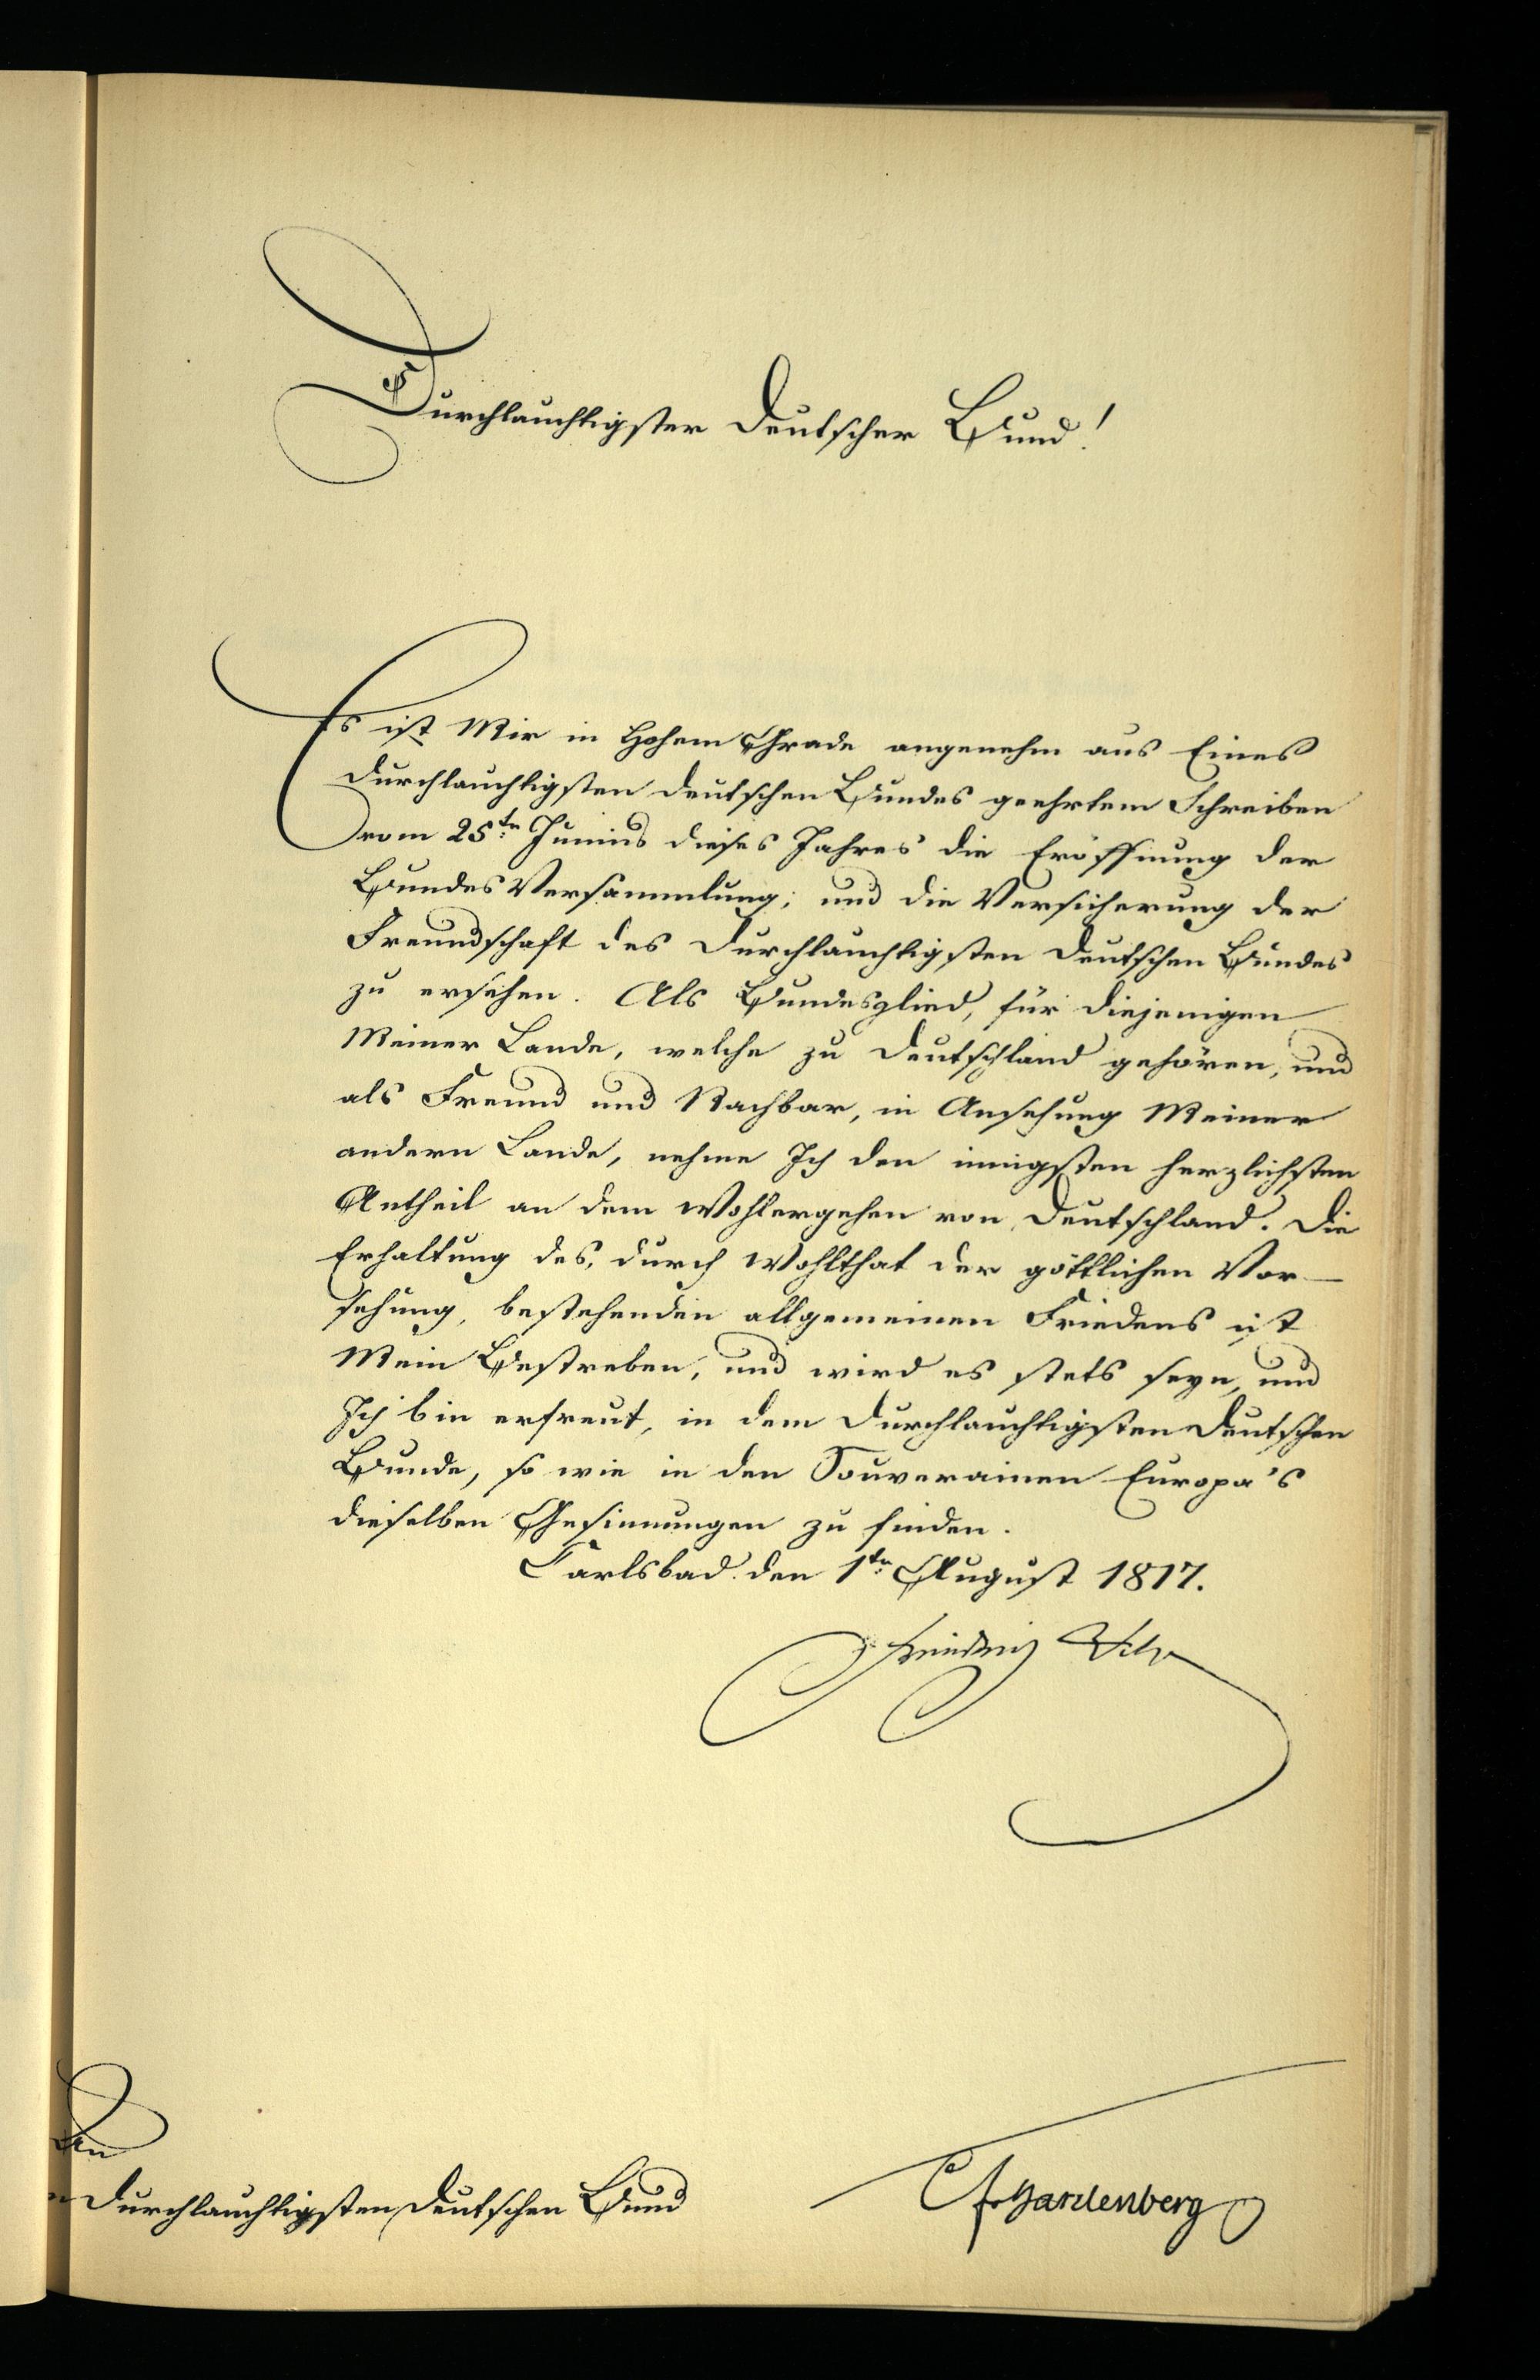 Durchlauchtigster Deutscher Bund!
Es ist Mir in Hohem Grade angenehm aus Eines
Durchlauchtigsten Deutschen Bundes geehrtem Schreiben
vom 25ten Junius dieses Jahres die Eröffnung der
Bundes Versammlung; und die Versicherung der
Freundschaft des Durchlauchtigsten Deutschen Bundes
zu ersehen. Als Bundesglied, für diejenigen
Meiner Lande, welche zu Deutschland gehören, und
als Freund und Nachbar, in Ansehung Meiner
andern Lande, nehme Ich den innigsten herzlichsten
Antheil an dem Wohlergehen von Deutschland. Die
Erhaltung des, durch Wohlthat der göttlichen Vor-
sehung, bestehenden allgemeinen Friedens ist
Mein Bestreben, und wird es stets seyn, und
Ich bin erfreut, in dem Durchlauchtigsten Deutschen
Bunde, so wie in den Souverainen Europa's
dieselben Gesinnungen zu finden.
Carlsbad den 1ten August 1817.
Friedrich Wilh
An
Durchlauchtigsten Deutschen Bund
CfvHardenberg